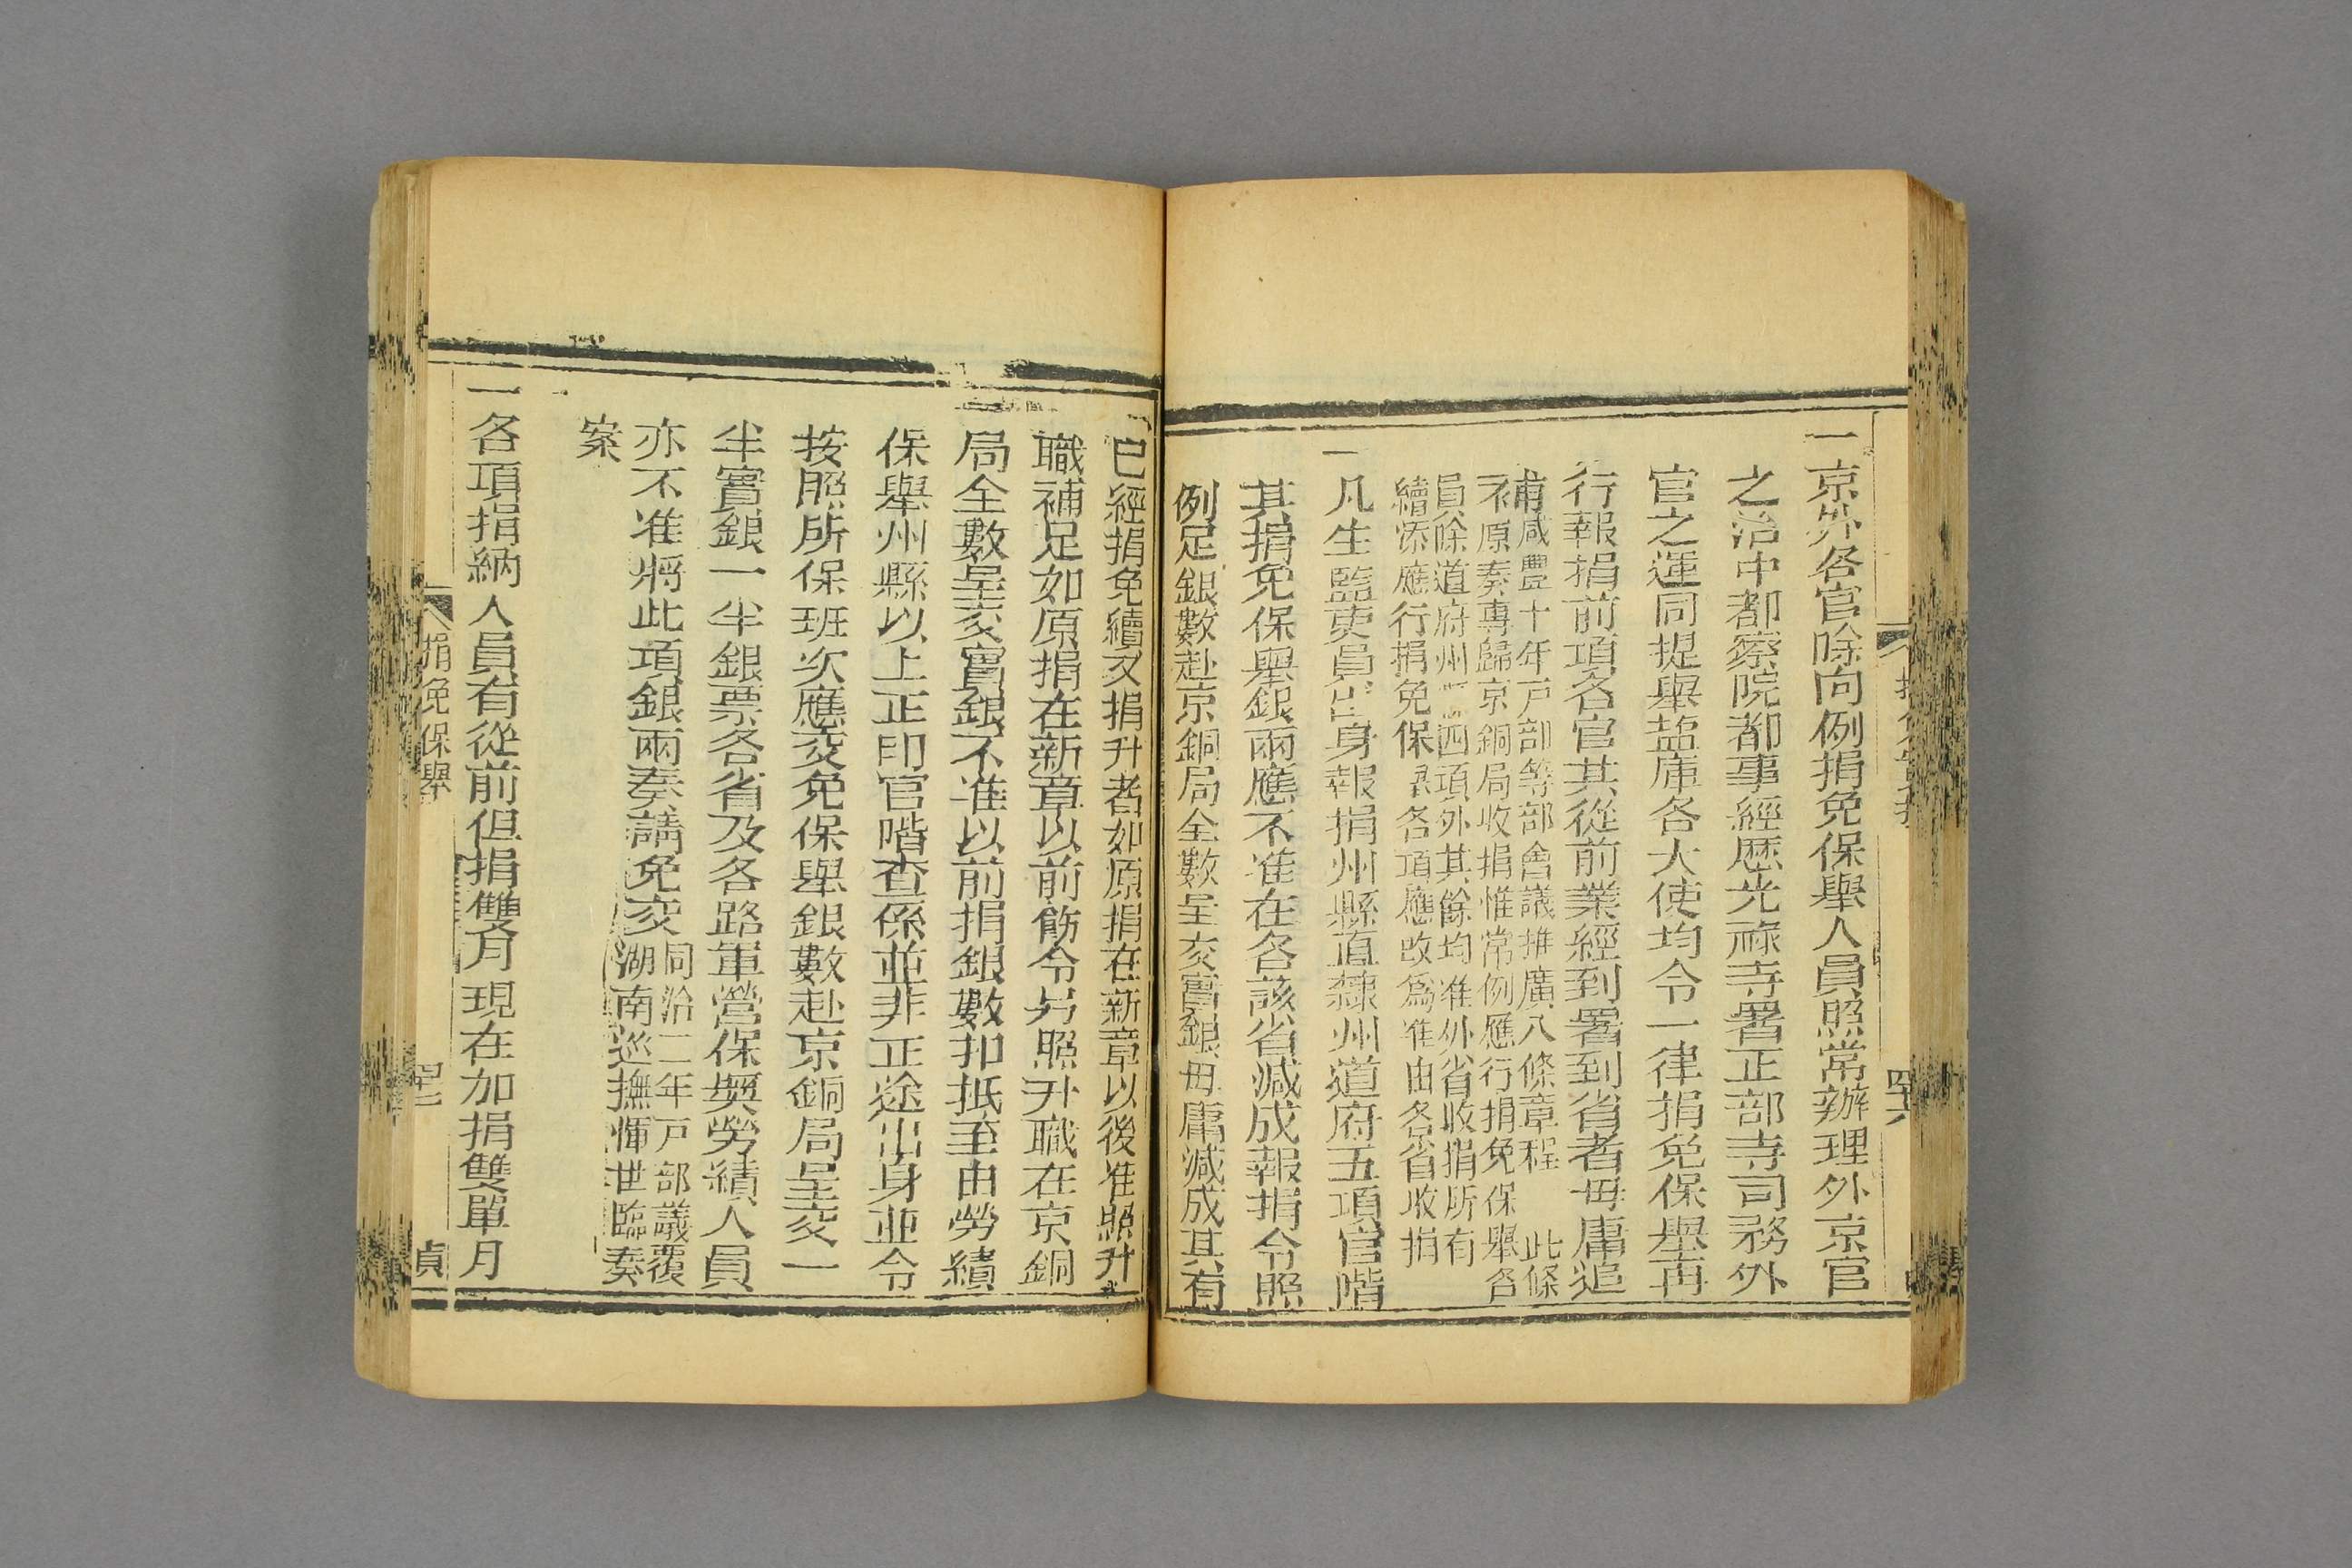 一京外各官除向例捐免保舉人員照常辦理外京官
之治中都察院都事經歷光祿寺署正部寺司務外
官之運同提舉鹽庫各大使均令一律捐免保舉再
行報捐前項各官其從前業經到署到省者毋庸追
補咸豐十年戸部等部會議推廣八條章程 此條
不原奏專歸京銅局收捐惟常例應行捐免保舉各
員除道府州 四項外其餘均准外省收捐所有
續添應行捐免保 各項應改爲准由各省收捐
一凡生監吏員出身報捐州縣直隸州道府五項官階
其捐免保舉銀兩應不准在各該省減成報捐令照
例足銀數赴京銅局全數呈交實銀毋庸減成其有
已經捐免續又捐升者如原捐在新章以後准照升
職補足如原捐在新章以前飭令另照升職在京銅
局全數呈交實銀不准以前捐銀數扣抵至由勞績
保舉州縣以上正印官階查係並非正途出身亚令
按照所保班次應交免保舉銀數赴京銅局呈交一
半實銀一半銀票各省及各路軍營保奬勞績人員
亦不准將此項銀兩奏請免交
同治二年戸部議覆
湖南巡撫惲世臨奏
案
一各項捐納人員有從前但捐雙月現在加捐雙單月
捐免保舉
貞